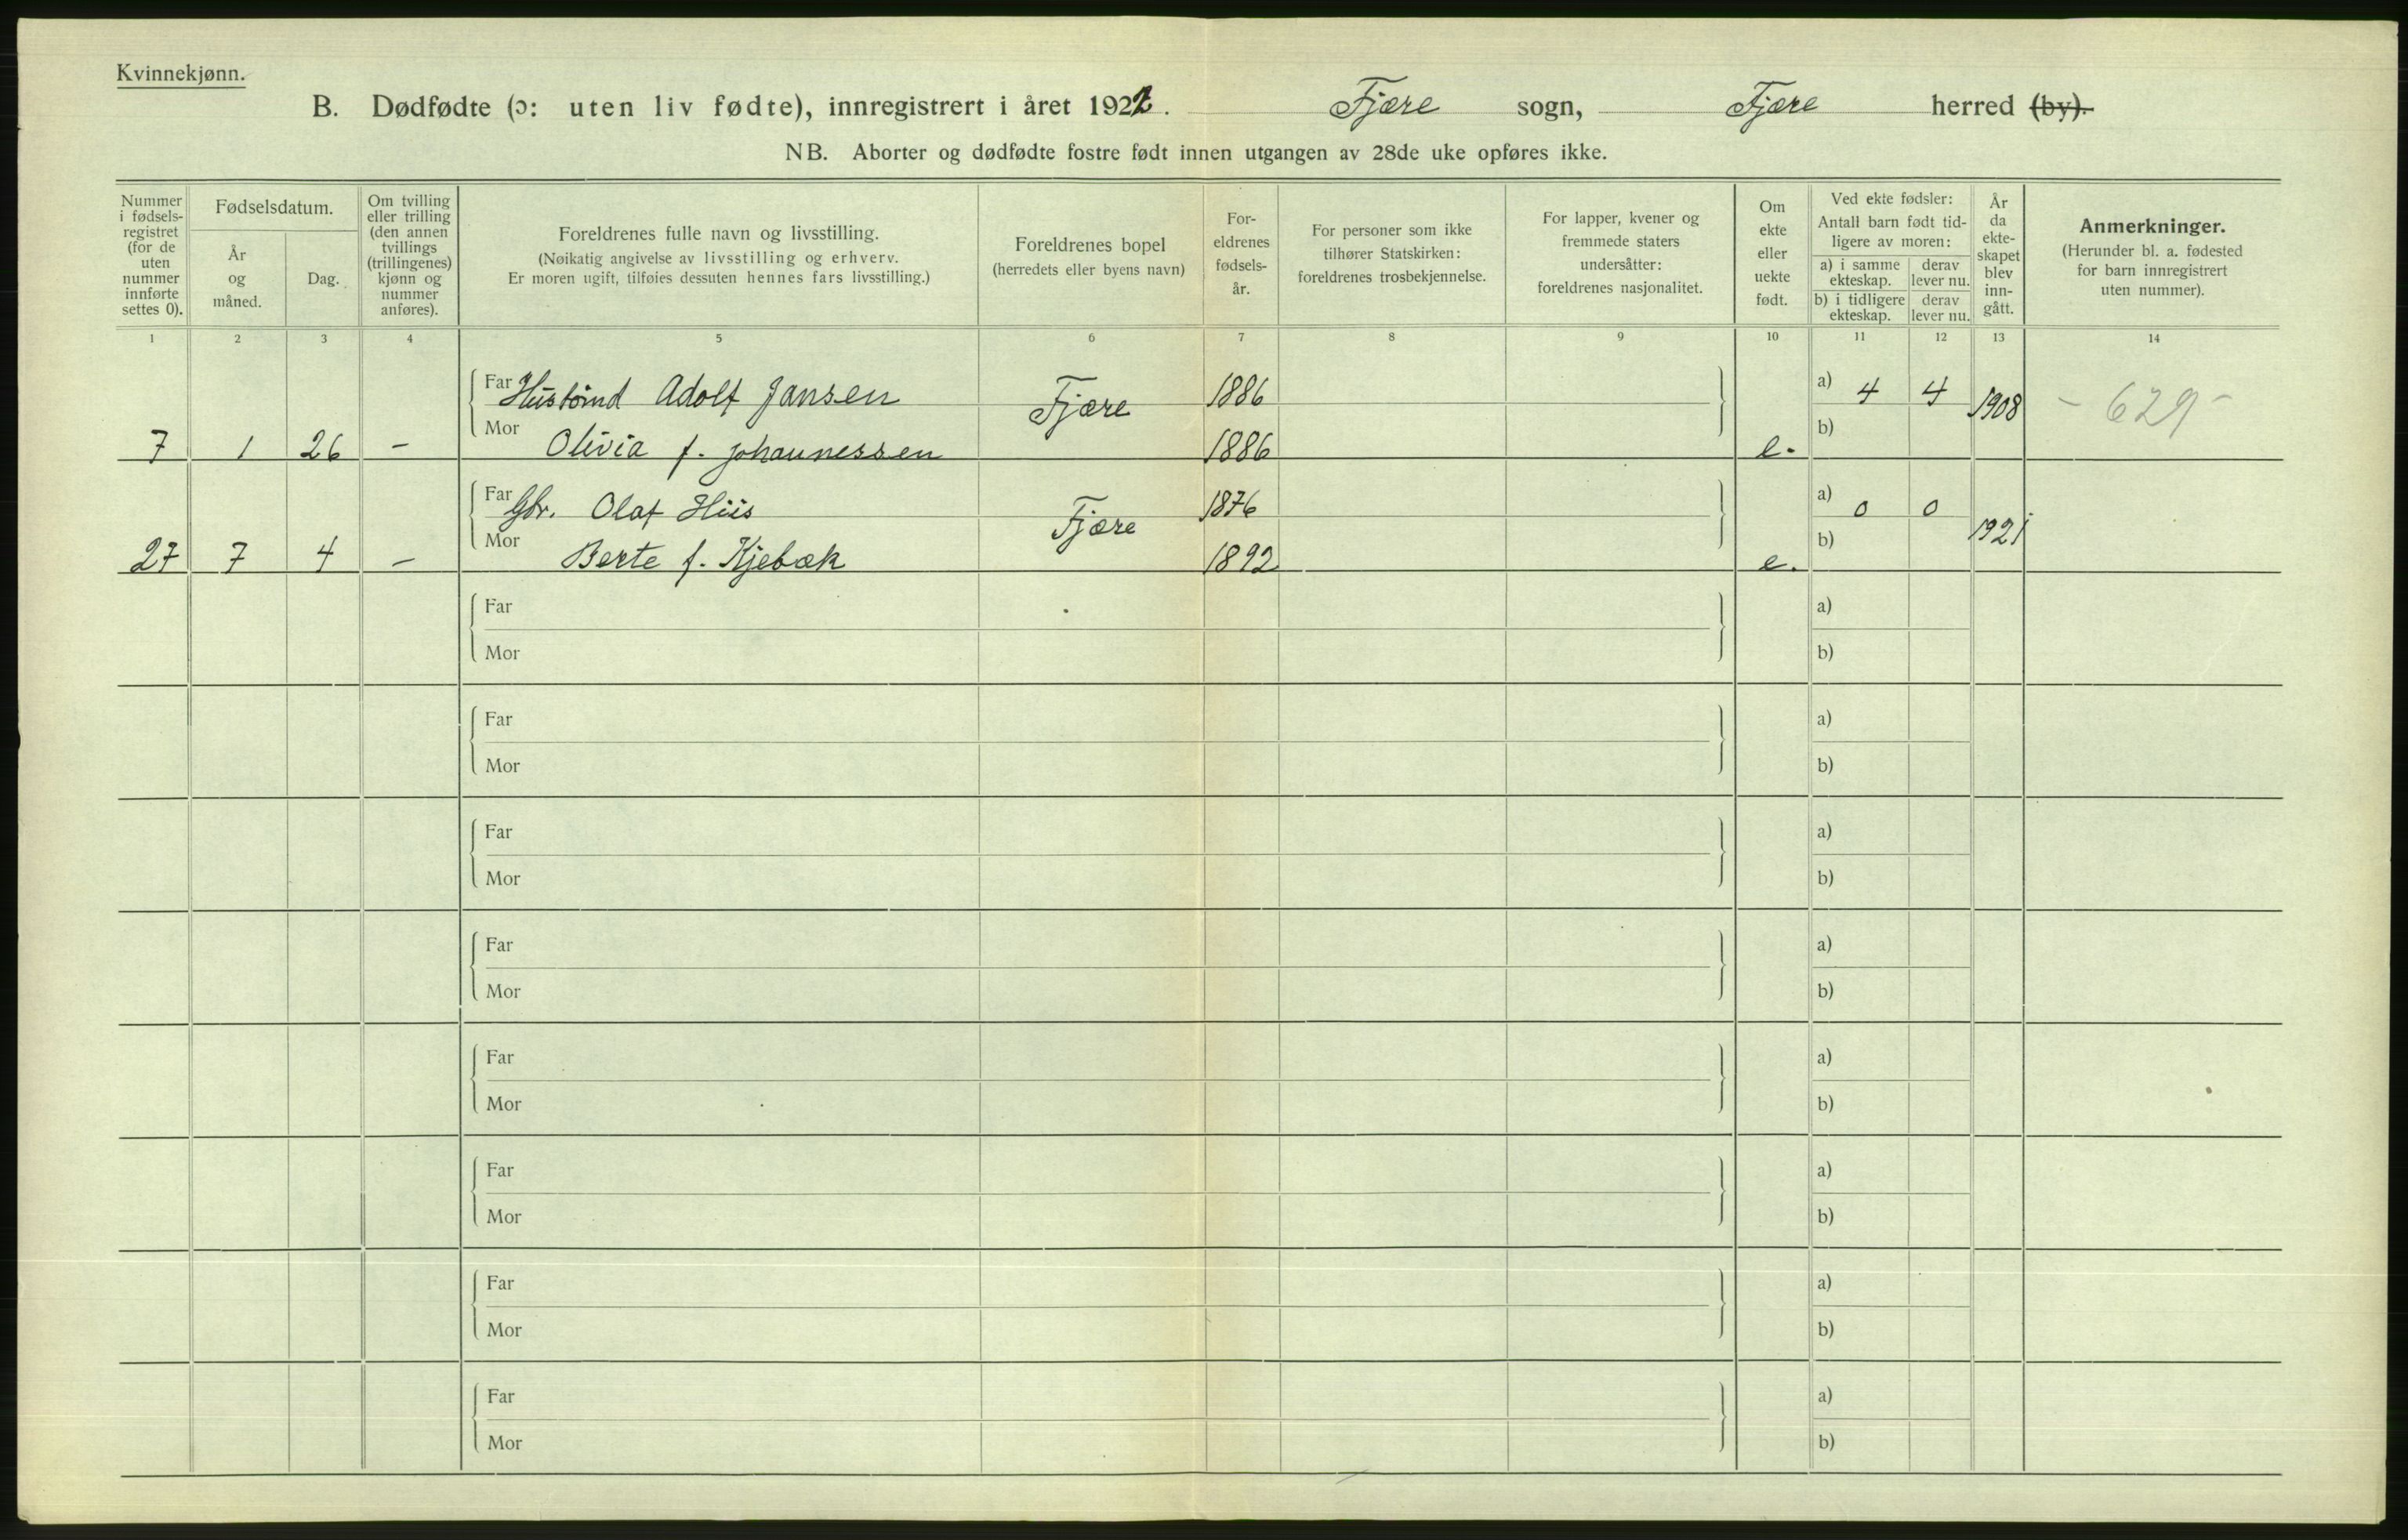 Kvinnekjønn.
B. Dødfødte (ɔ: uten liv fødte), innregistrert i året 1922. Fjære sogn, Fjære herred (by).
NB. Aborter og dødfødte fostre født innen utgangen av 28de uke opføres ikke.
Nummer
i fødsels-
registret
(for de
uten
nummer
innførte
settes 0).
Fødselsdatum.
År
og
måned.
Dag.
Om tvilling
eller trilling
(den annen
tvillings
(trillingenes)
kjønn og
nummer
anføres).
Foreldrenes fulle navn og livsstilling.
(Nøikatig angivelse av livsstilling og erhverv.
Er moren ugift, tilføies dessuten hennes fars livsstilling.)
Foreldrenes bopel
(herredets eller byens navn)
For-
eldrenes
fødsels-
år.
For personer som ikke
tilhører Statskirken:
foreldrenes trosbekjennelse.
For lapper, kvener og
fremmede staters
undersåtter:
foreldrenes nasjonalitet.
Om
ekte
eller
uekte
født.
Ved ekte fødsler:
Antall barn født tid-
ligere av moren:
a) i samme
ekteskap.
derav
lever nu.
b) i tidligere
ekteskap.
derav
lever nu.
År
da
ekte-
skapet
blev
inn-
gått.
Anmerkninger.
(Herunder bl. a. fødested
for barn innregistrert
uten nummer).
1 2 3 4 5 6 7 8 9 10 11 12 13 14
Far Adolf Jansen Fjære 1886 a) 4 4 1908 - 629 -
7 1 26 - Mor Olivia f. Johannessen 1886 e. b)
Far Gbr. Olaf Hiis Fjære 1876 a) 0 0 1921
27 7 4 - Mor Berte f. Kjebæk 1892 e. b)
Far a)
Mor b)
Far a)
Mor b)
Far a)
Mor b)
Far a)
Mor b)
Far a)
Mor b)
Far a)
Mor b)
Far a)
Mor b)
Far a)
Mor b)